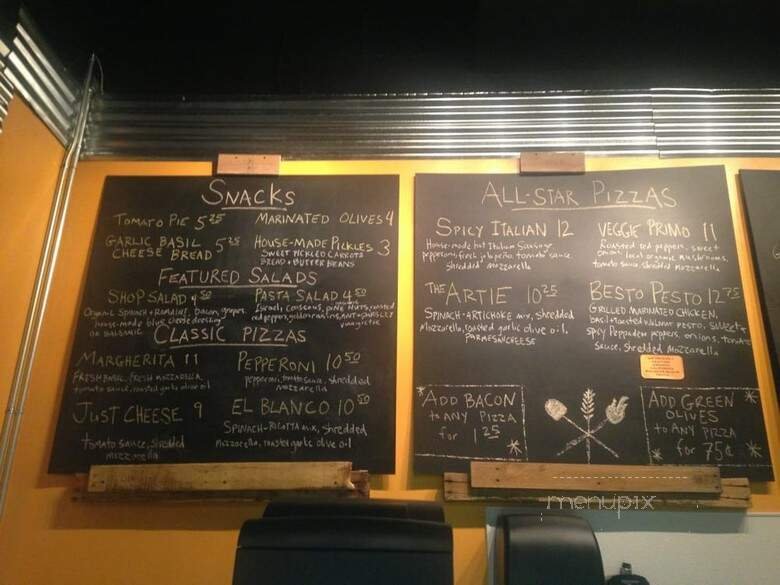 SNACKS
TOMATO PIE 5 25
MARINATED OLIVES 4
GARLIC BASIL CHEESE BREAD 5 25
HOUSE-MADE PICKLES 3
SWEET PICKLED CARROTS
BREAD + BUTTER BEANS
FEATURED SALADS
SHOP SALAD 4 50
Organic Spinach + Romaine, bacon, grapes,
house-made blue cheese dressing
OR BALSAMIC
PASTA SALAD 4 50
Israeli couscous, pine nuts, roasted
red peppers, golden raisins, MINT + PARSLEY
vinaigrette
CLASSIC PIZZAS
MARGHERITA 11
FRESH BASIL, FRESH MOZZARELLA,
tomato sauce, roasted garlic olive oil
PEPPERONI 10 50
pepperoni, tomato sauce, shredded
mozzarella
JUST CHEESE 9
tomato sauce, shredded
mozzarella
EL BLANCO 10 50
SPINACH-RICOTTA mix, shredded
Mozzarella, roasted garlic olive oil
ALL-STAR PIZZAS
SPICY ITALIAN 12
House-made hot Italian Sausage
pepperoni, fresh jalapeño, tomato sauce,
shredded mozzarella
VEGGIE PRIMO 11
Roasted red peppers, sweet
onion, local organic mushrooms,
tomato sauce, shredded mozzarella
THE ARTIE 10 25
SPINACH-ARTICHOKE mix, shredded
Mozzarella, roasted garlic olive oil,
PARMESAN CHEESE
BESTO PESTO 12 75
GRILLED MARINATED CHICKEN,
basil + toasted walnut pesto, sweet +
spicy Peppadew peppers, onions, tomato
sauce, shredded mozzarella
ADD BACON
to ANY PIZZA
for 1 25
ADD GREEN
OLIVES
to ANY PIZZA
for 75¢
menupix